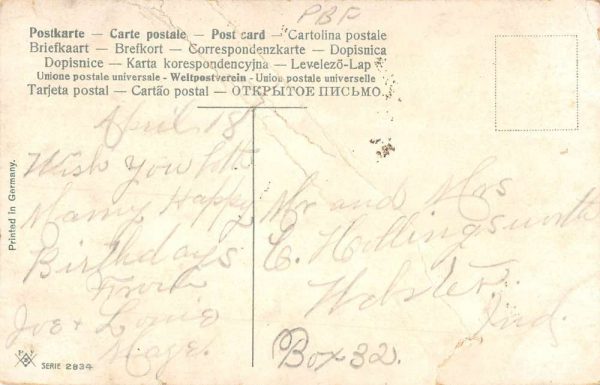 PBF
Postkarte — Carte postale — Post card — Cartolina postale
Briefkaart — Brefkort — Correspondenzkarte — Dopisnica
Dopisnice — Karta korespondencyjna — Levelező-Lap
Unione postale universale - Weltpostverein - Union postale universelle
Tarjeta postal — Cartão postal — ОТКРЫТОЕ ПИСЬМО.
April 18
Wish you both
Many Happy
Birthdays
From
Joe +
Mr and Mrs
C. Hollingsworth
Webster.
Ind.
Box 32.
Printed in Germany.
SERIE 2834